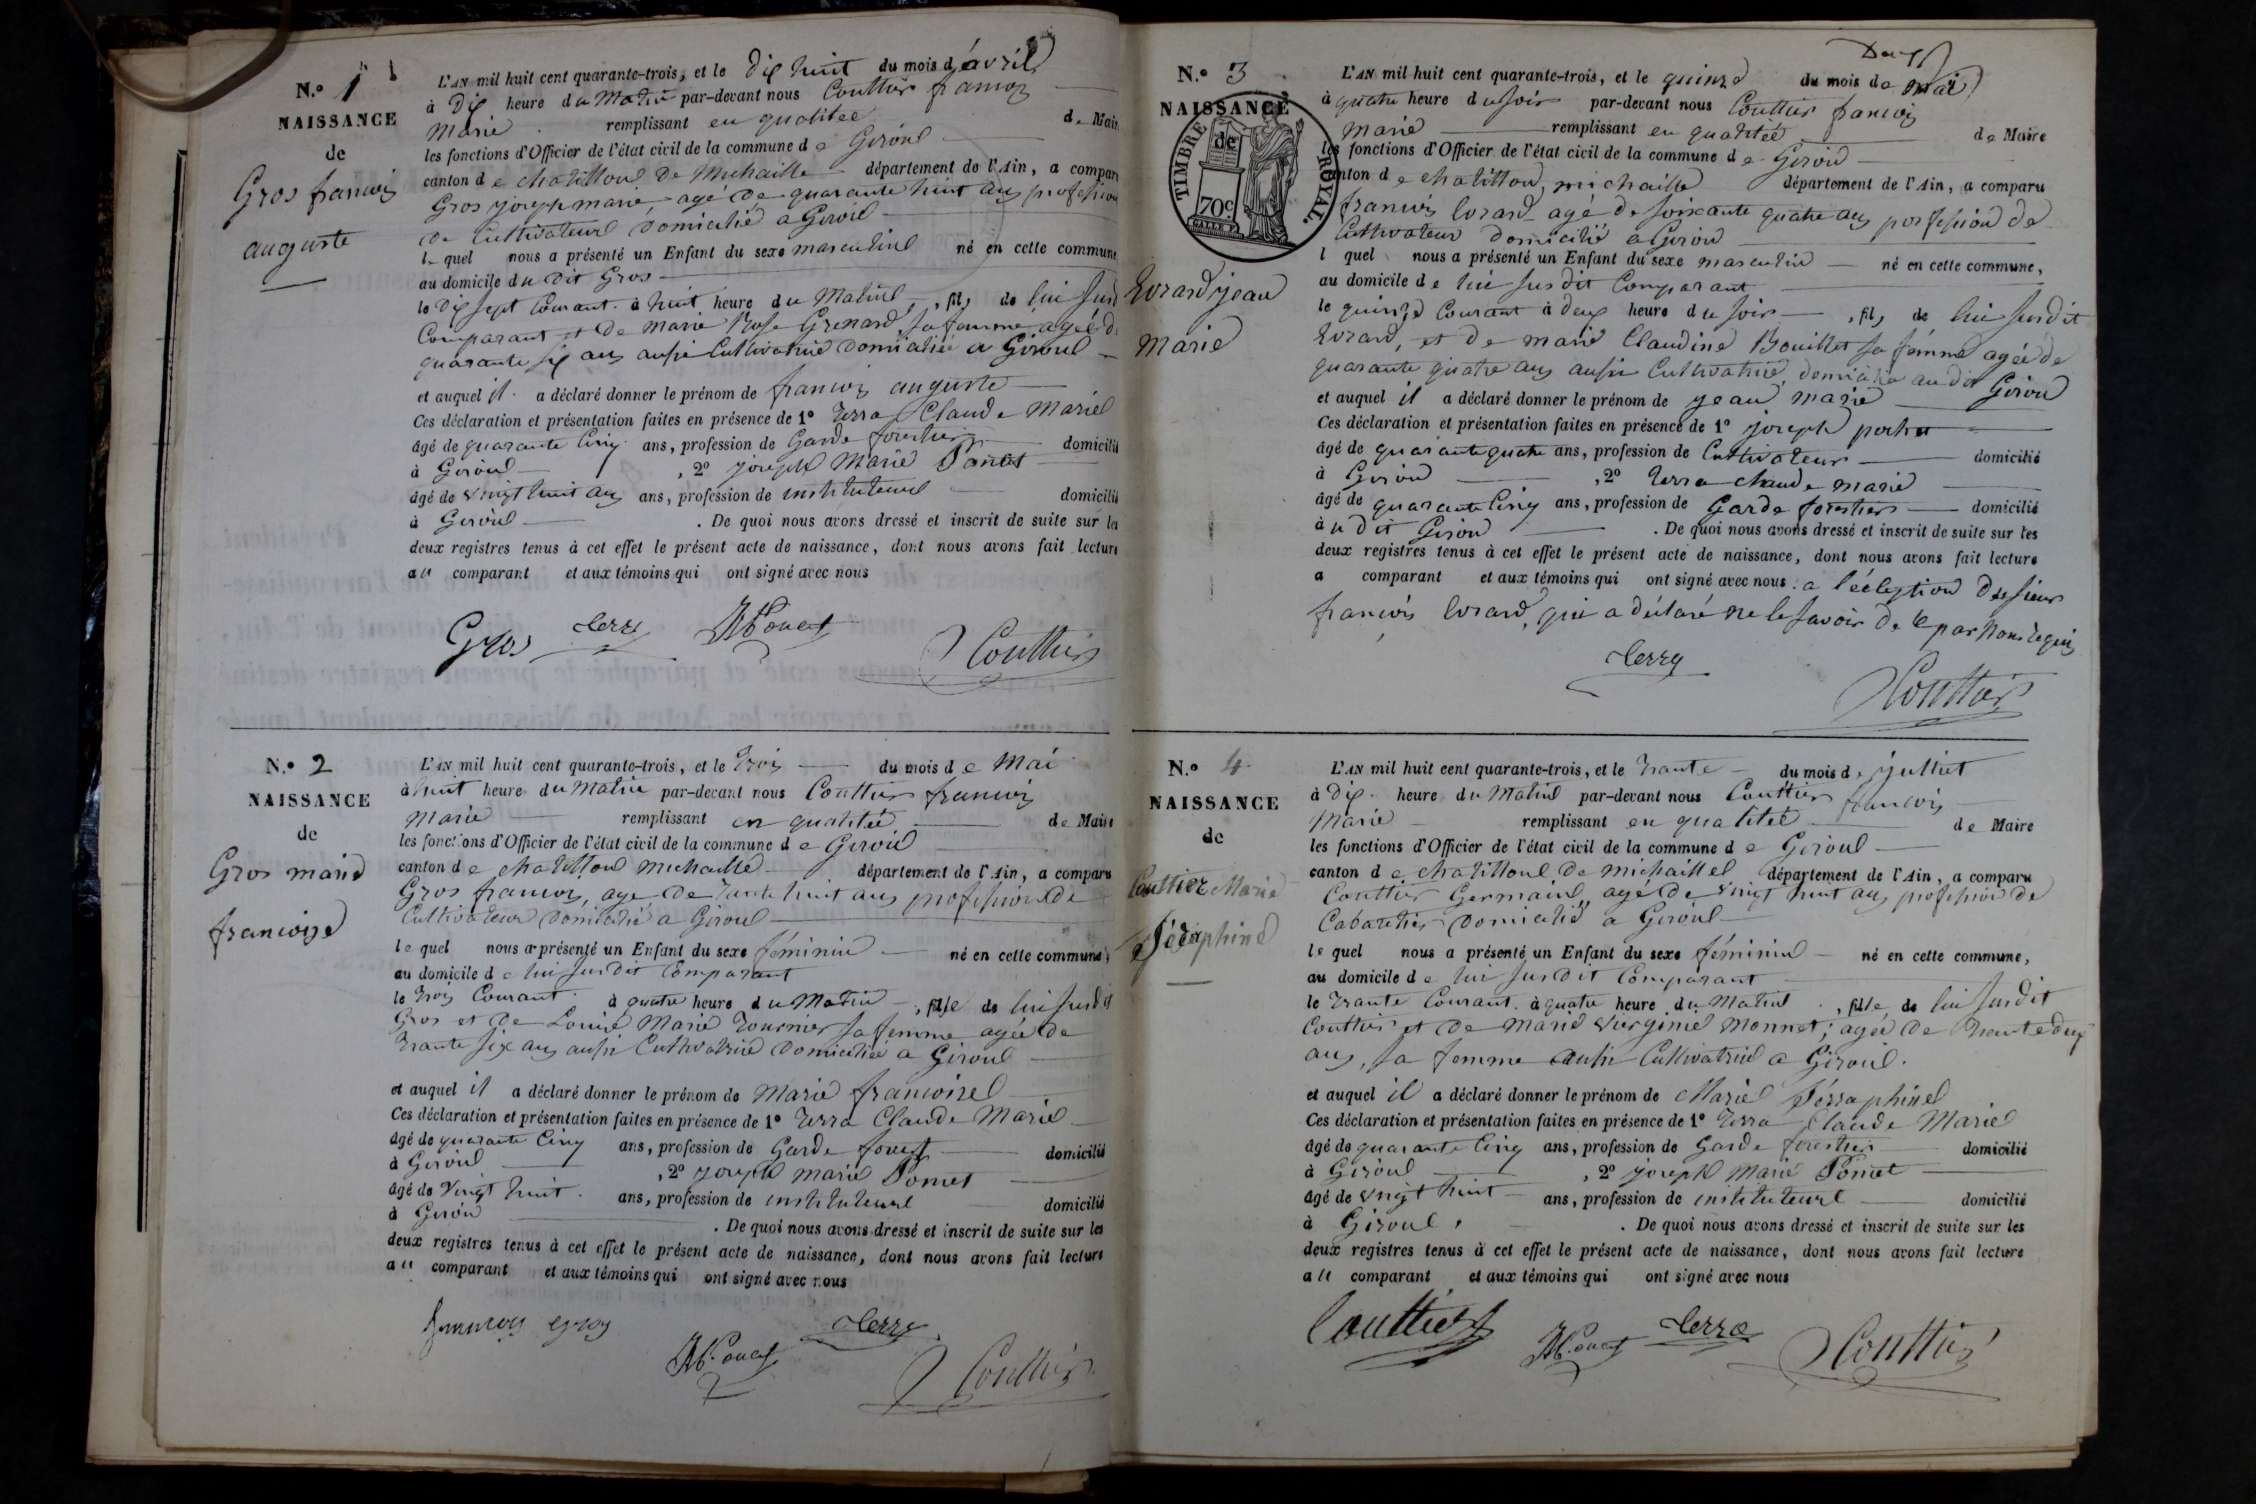 N.º 1
NAISSANCE
de
Gros francois
auguste
L'AN mil huit cent quarante-trois, et le dix huit du mois d'avril
à dix heure du Matin par-devant nous Couttier francois
Marie remplissant en qualitée de Maire
les fonctions d'Officier de l'état civil de la commune de Giroul
canton de chatilloul de Michaille département de l'Ain, a comparu
Gros joseph marie, agé de quarante huit ans profession
de Cultivateur Domicilié a Giroul
lequel nous a présenté un Enfant du sexe masculine né en cette commune
au domicile du dit Gros
le dix sept Courant à huit heure du Matinl, fils de lui susdit
Comparant et de marie Rose Grenard sa femme agée de
quarante six ans aussi Cultivatrice domiciliée a Giroul
et auquel il a déclaré donner le prénom de francois auguste
Ces déclaration et présentation faites en présence de 1º Terra Claude Mariel
âgé de quarante cinq ans, profession de Garde forestier domicilié
à Giroul, 2º joseph Marie Poncet
âgé de vingt huit ans ans, profession de instituteurl domicilié
à Giroul. De quoi nous avons dressé et inscrit de suite sur les
deux registres tenus à cet effet le présent acte de naissance, dont nous avons fait lecture
au comparant et aux témoins qui ont signé avec nous
Gros Terra JM Poncet Couttier
N.º 2
NAISSANCE
de
Gros marie
francoise
L'AN mil huit cent quarante-trois, et le trois du mois de Mai
à huit heure du Matin par-devant nous Couttier francois
Marie remplissant en qualitée de Maire
les fonctions d'Officier de l'état civil de la commune de Giroul
canton de chatilloul michaille département de l'Ain, a comparu
Gros francois, agé de trante huit ans profession de
Cultivateur Domicilié a Giroul
lequel nous a présenté un Enfant du sexe féminin né en cette commune,
au domicile de lui susdit Comparant
le trois Courant à quatre heure du Matin, fille de lui susdit
Gros et de Louise Marie Tournier sa femme agée de
trante six ans aussi Cultivatrice Domiciliée a Giroul
et auquel il a déclaré donner le prénom de Marie francoisel
Ces déclaration et présentation faites en présence de 1º Terra Claude Mariel
âgé de quarante cinq ans, profession de Garde forest domicilié
à Giroul, 2º joseph marie Poncet
âgé de vingt huit ans, profession de instituteurl domicilié
à Giroul. De quoi nous avons dressé et inscrit de suite sur les
deux registres tenus à cet effet le présent acte de naissance, dont nous avons fait lecture
au comparant et aux témoins qui ont signé avec nous
francois gros JM Poncet Terra Couttier
Deux
N.º 3
NAISSANCE
de
TIMBRE ROYAL.
70c
Evrard jean
Marie
L'AN mil huit cent quarante-trois, et le quinze du mois de mai
à quatre heure du soir par-devant nous Couttier francois
Marie remplissant en qualitée de Maire
les fonctions d'Officier de l'état civil de la commune de Giroul
canton de chatilloul, michaille département de l'Ain, a comparu
francois Evrard agé de soixante quatre ans porfession de
Cultivateur domicilié a Giroul
lequel nous a présenté un Enfant du sexe masculin né en cette commune,
au domicile de lui susdit Comparant
le quinze Courant à deux heure du soir, fils de lui susdit
Evrard, et de marie Claudine Bouillet sa femme agée de
quarante quatre ans aussi Cultivatrice, domiciliée au dit Giroul
et auquel il a déclaré donner le prénom de jean marie
Ces déclaration et présentation faites en présence de 1º joseph
âgé de quarante quatre ans, profession de Cultivateur domicilié
à Giroul, 2º Terra claude marie
âgé de quarante cinq ans, profession de Garde forestier domicilié
au dit Giroul. De quoi nous avons dressé et inscrit de suite sur les
deux registres tenus à cet effet le présent acte de naissance, dont nous avons fait lecture
a comparant et aux témoins qui ont signé avec nous a l'éléxption
francois Evrard, qui a déclaré ne le savoir de par Nous requis
Terra Couttier
N.º 4
NAISSANCE
de
Couttier Marie
Séraphine
L'AN mil huit cent quarante-trois, et le trante du mois de juilliet
à dix heure du Matinl par-devant nous Couttier francois
Marie remplissant en qualitée de Maire
les fonctions d'Officier de l'état civil de la commune de Giroul
canton de chatilloul de michaillel département de l'Ain, a comparu
Couttier Germainl, agé de vingt huit ans profession de
Cabaretier Domicilié a Giroul
lequel nous a présenté un Enfant du sexe fémininl né en cette commune,
au domicile de lui susdit Comparant
le trante Courant à quatre heure du Matinl, fille de lui susdit
Couttier et de Marie Virginiel Monnet, agée de trante deux
ans, sa femme aussi Cultivatricel a Giroul.
et auquel il a déclaré donner le prénom de Mariel Serraphinel
Ces déclaration et présentation faites en présence de 1º Terra Claude Mariel
âgé de quarante cinq ans, profession de Garde forestier domicilié
à Giroul, 2º joseph Marie Poncet
âgé de vingt huit ans, profession de instituteurl domicilié
à Giroul. De quoi nous avons dressé et inscrit de suite sur les
deux registres tenus à cet effet le présent acte de naissance, dont nous avons fait lecture
au comparant et aux témoins qui ont signé avec nous
Couttier JM Poncet Terra Couttier